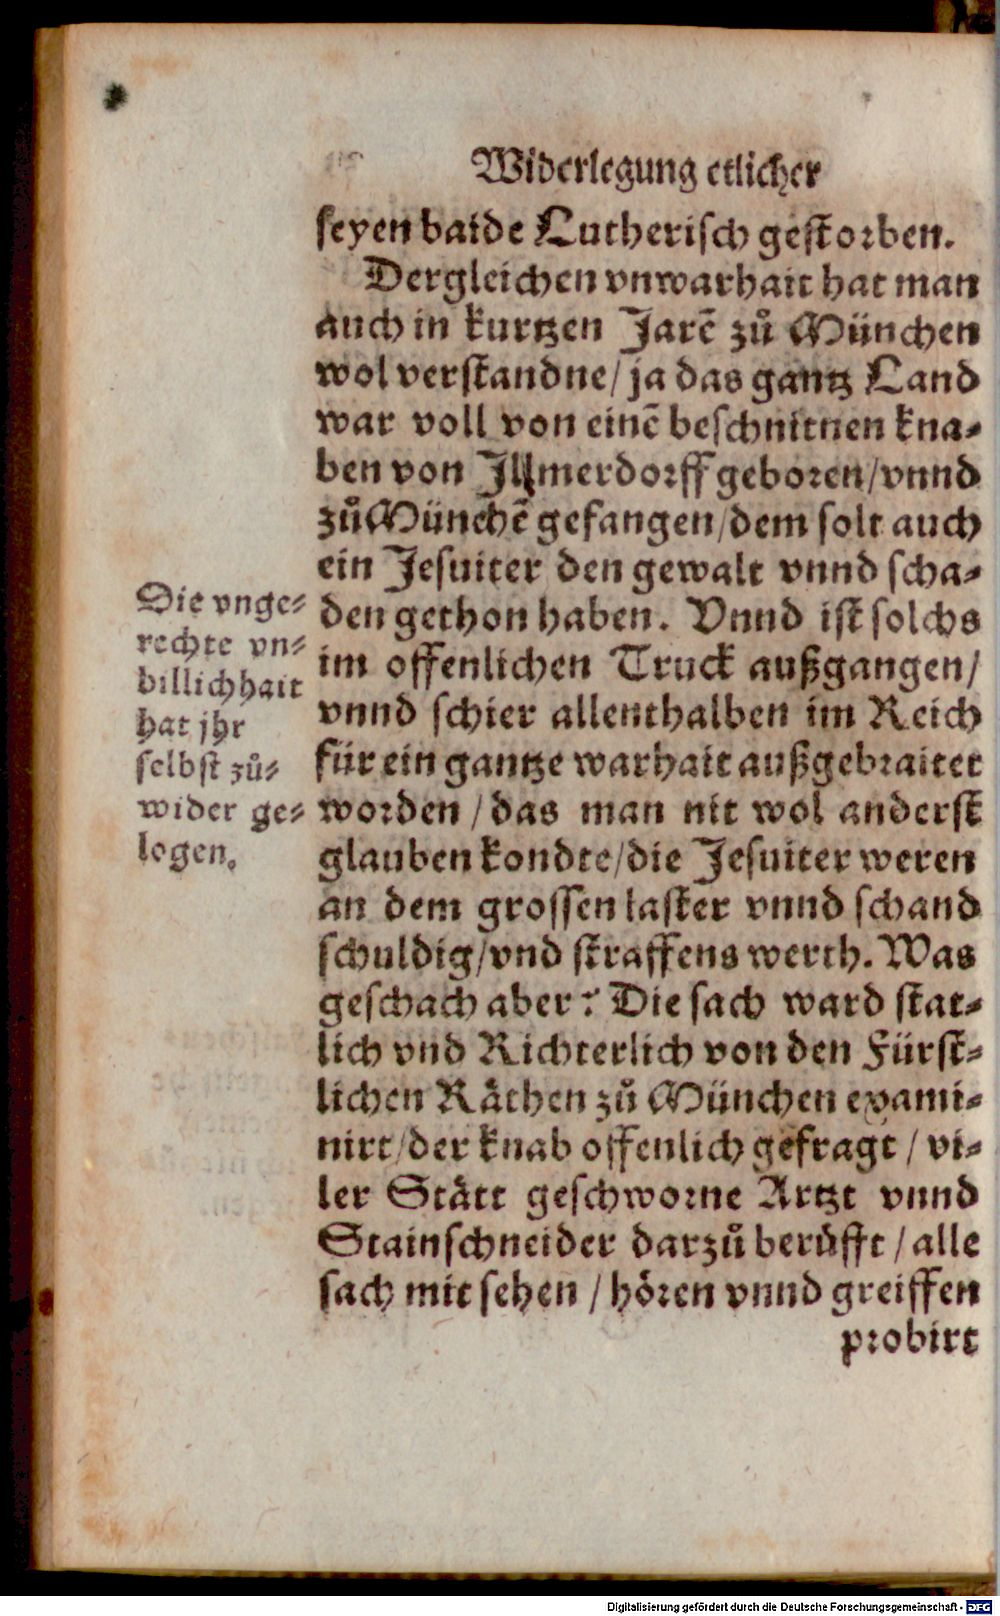 Widerlegung etlicher
seyen baide Lutherisch gestorben.
Dergleichen vnwarhait hat man
auch in kurtzen Jarē zů München
wol verstandne/ ja das gantz Land
war voll von einē beschnitnen kna-
ben von Jllmerdorff geboren/ vnnd
zů Münchē gefangen/ dem solt auch
ein Jesuiter den gewalt vnnd scha-
den gethon haben. Vnnd ist solchs
im offenlichen Truck außgangen/
vnnd schier allenthalben im Reich
für ein gantze warhait außgebraitet
worden / das man nit wol anderst
glauben kondte/ die Jesuiter weren
an dem grossen laster vnnd schand
schuldig/ vnd straffens werth. Was
geschach aber? Die sach ward stat-
lich vnd Richterlich von den Fürst-
lichen Räthen zů München exami-
nirt/ der knab offenlich gefragt / vi-
ler Stätt geschworne Artzt vnnd
Stainschneider darzů berůfft / alle
sach mit sehen / hören vnnd greiffen
probirt
Die vnge-
rechte vn-
billichhait
hat jhr
selbst zů-
wider ge-
logen.
Digitalisierung gefördert durch die Deutsche Forschungsgemeinschaft - DFG